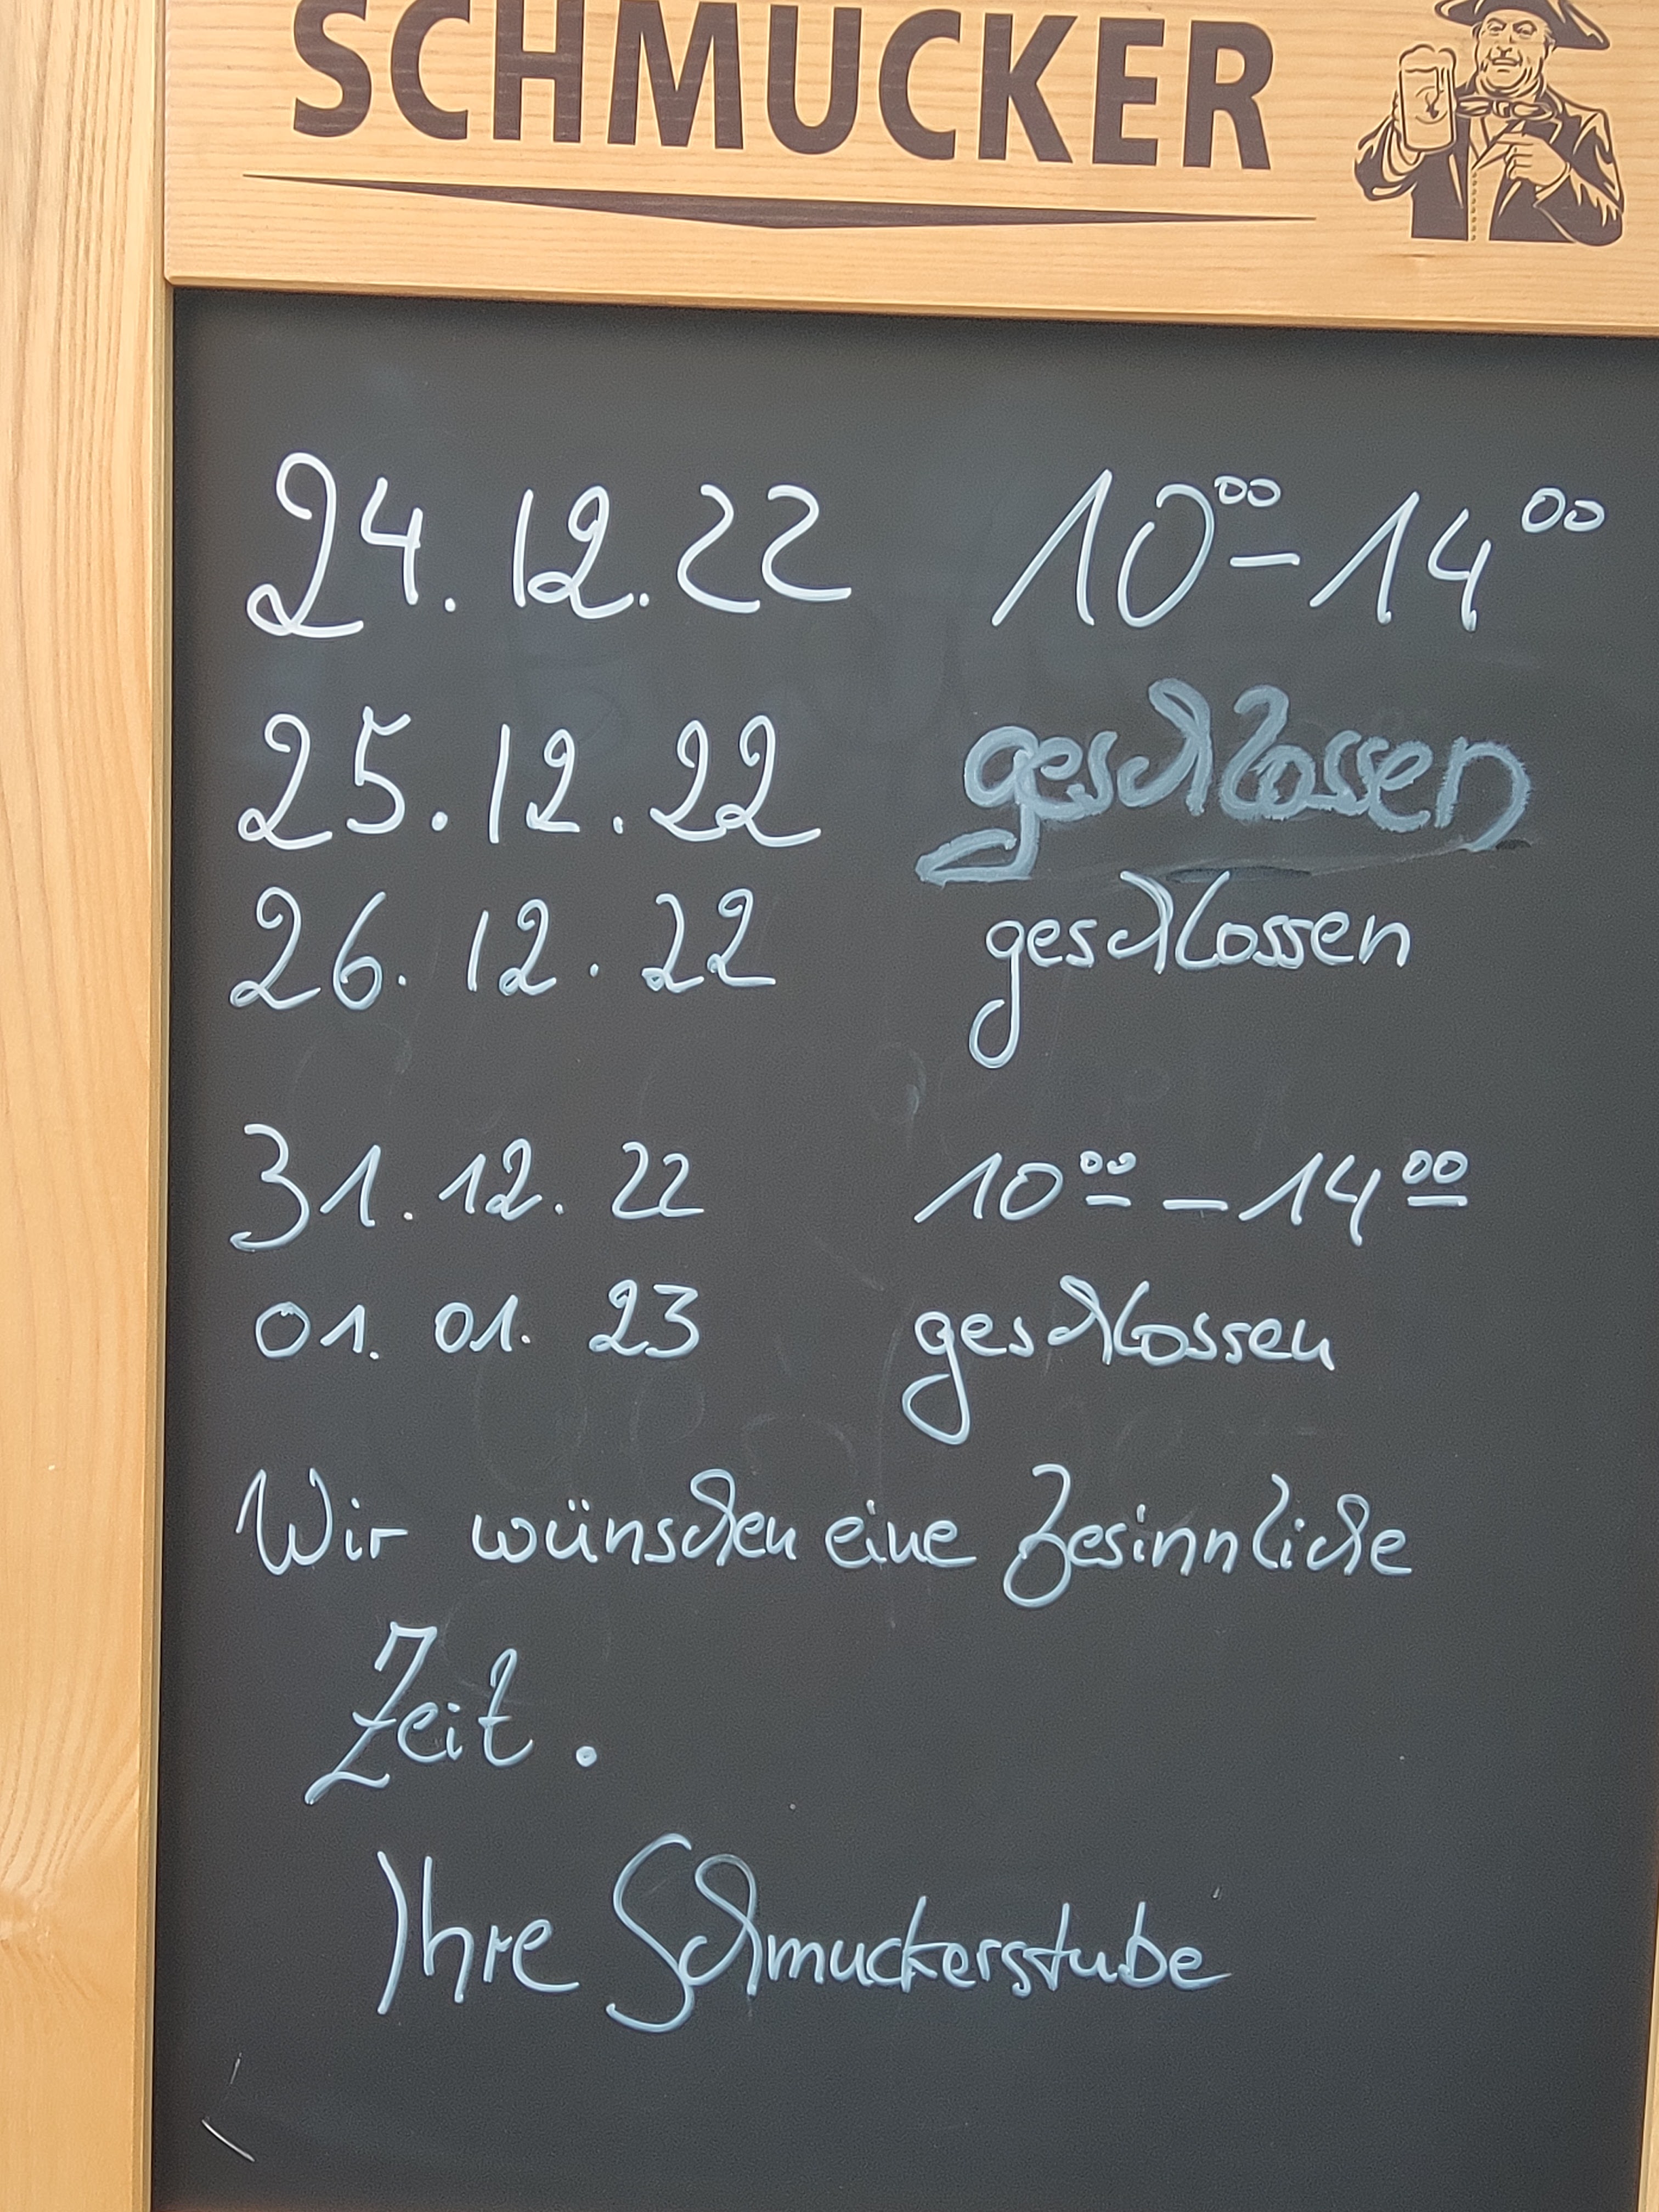 SCHMUCKER
24.12.22 10⁰⁰ - 14⁰⁰
25.12.22 geschlossen
26.12.22 geschlossen
31.12.22 10⁰⁰ - 14⁰⁰
01.01.23 geschlossen
Wir wünschen eine besinnliche
Zeit.
Ihre Schmuckerstube